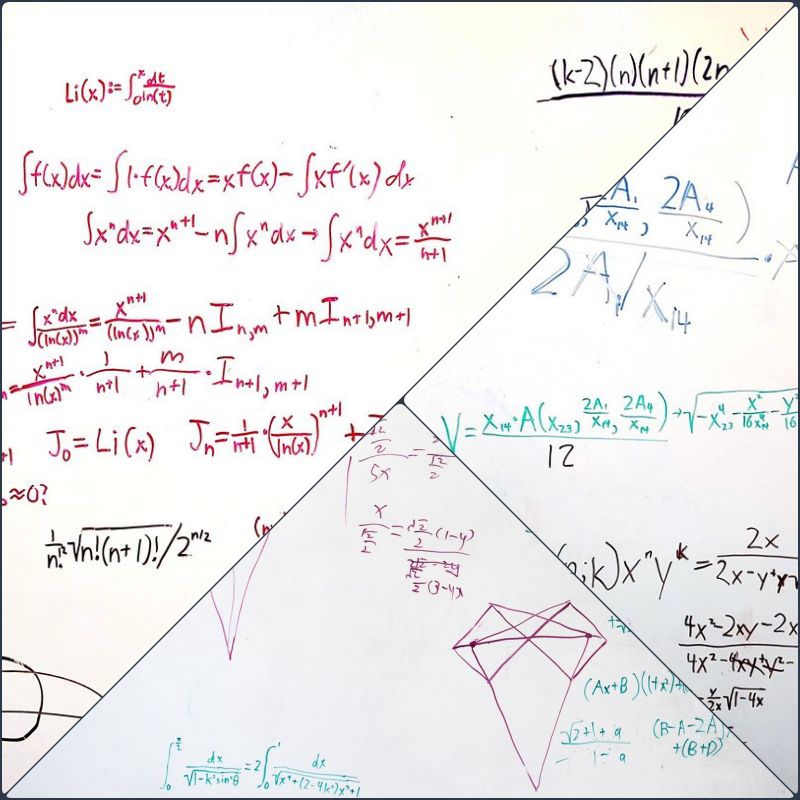 Li(x):=∫₀ˣ dt/ln(t)
∫f(x)dx=∫1·f(x)dx=xf(x)-∫xf'(x)dx
∫xⁿdx=xⁿ⁺¹-n∫xⁿdx→∫xⁿdx=xⁿ⁺¹/n+1
=∫xⁿdx/(ln(x))ᵐ=xⁿ⁺¹/(ln(x))ᵐ-nIₙ,ₘ+mIₙ₊₁,ₘ₊₁
=xⁿ⁺¹/ln(x)ᵐ·1/n+1+m/n+1·Iₙ₊₁,ₘ₊₁
J₀=Li(x) Jₙ=1/n+1·(x/ln(x))ⁿ⁺¹+
≈0?
√n!(n+1)!/2^(n/2)
(k-2)(n)(n+1)(2n
A₁/x₁₄, 2A₄/x₁₄)
2A₁/x₁₄
V=x₁₄·A(x₂₃, 2A₁/x₁₄, 2A₄/x₁₄)/12→√-x₂₃⁴-
;k)xⁿyᵏ=2x/2x-y+y
4x²-2xy-2x
4x²-
-y/2x√1-4x
5x
x/(√2/2)=√2/2(1-y)
√2/2(3-4x
(Ax+B)(1+x²)+
√2+1+a
1-a
(B-A-2A
+(B+D)
∫₀^(π/2) dx/√1-k²sin²θ=2∫₀¹ dx/√x⁴+(2-4k²)x²+1